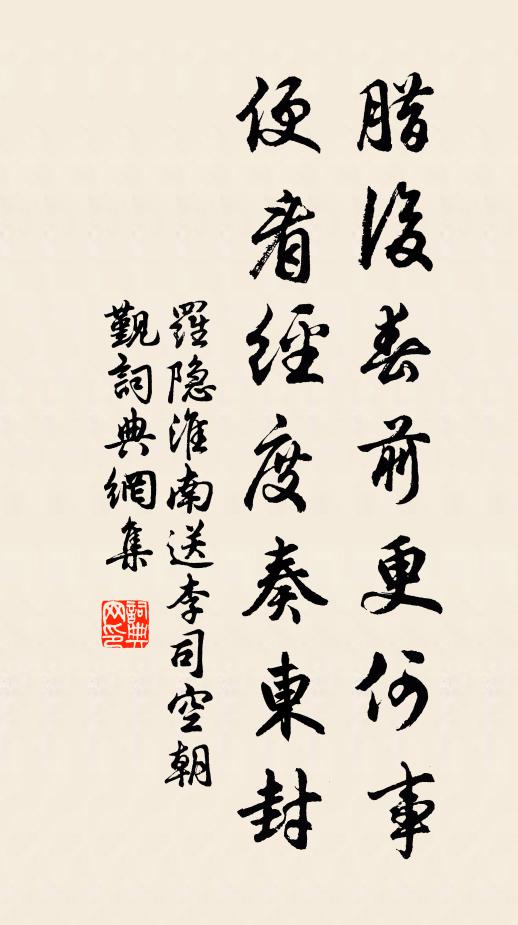 腊後春前更何事
便看經度奏東封
羅隐淮南送李司空朝
覲詞典網集
詞典网印